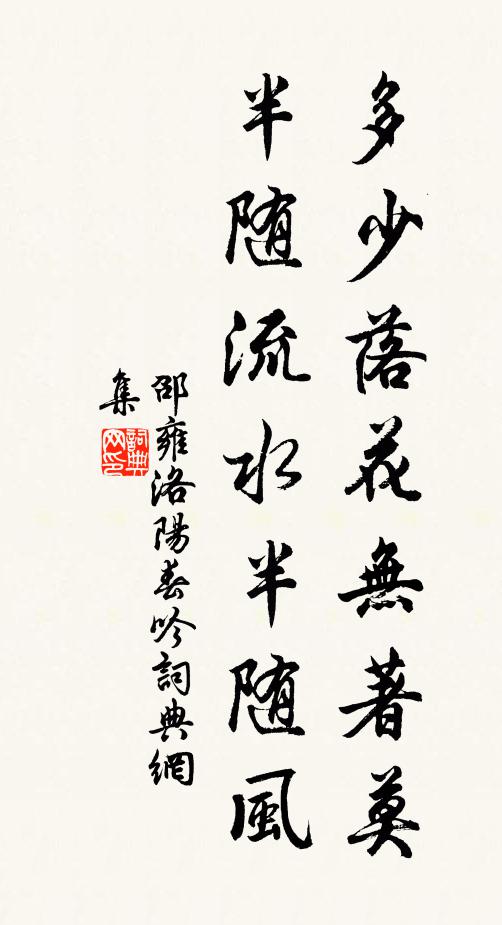 多少落花無著莫
半随流水半随風
邵雍洛陽春吟詞典網
集
詞典
网印